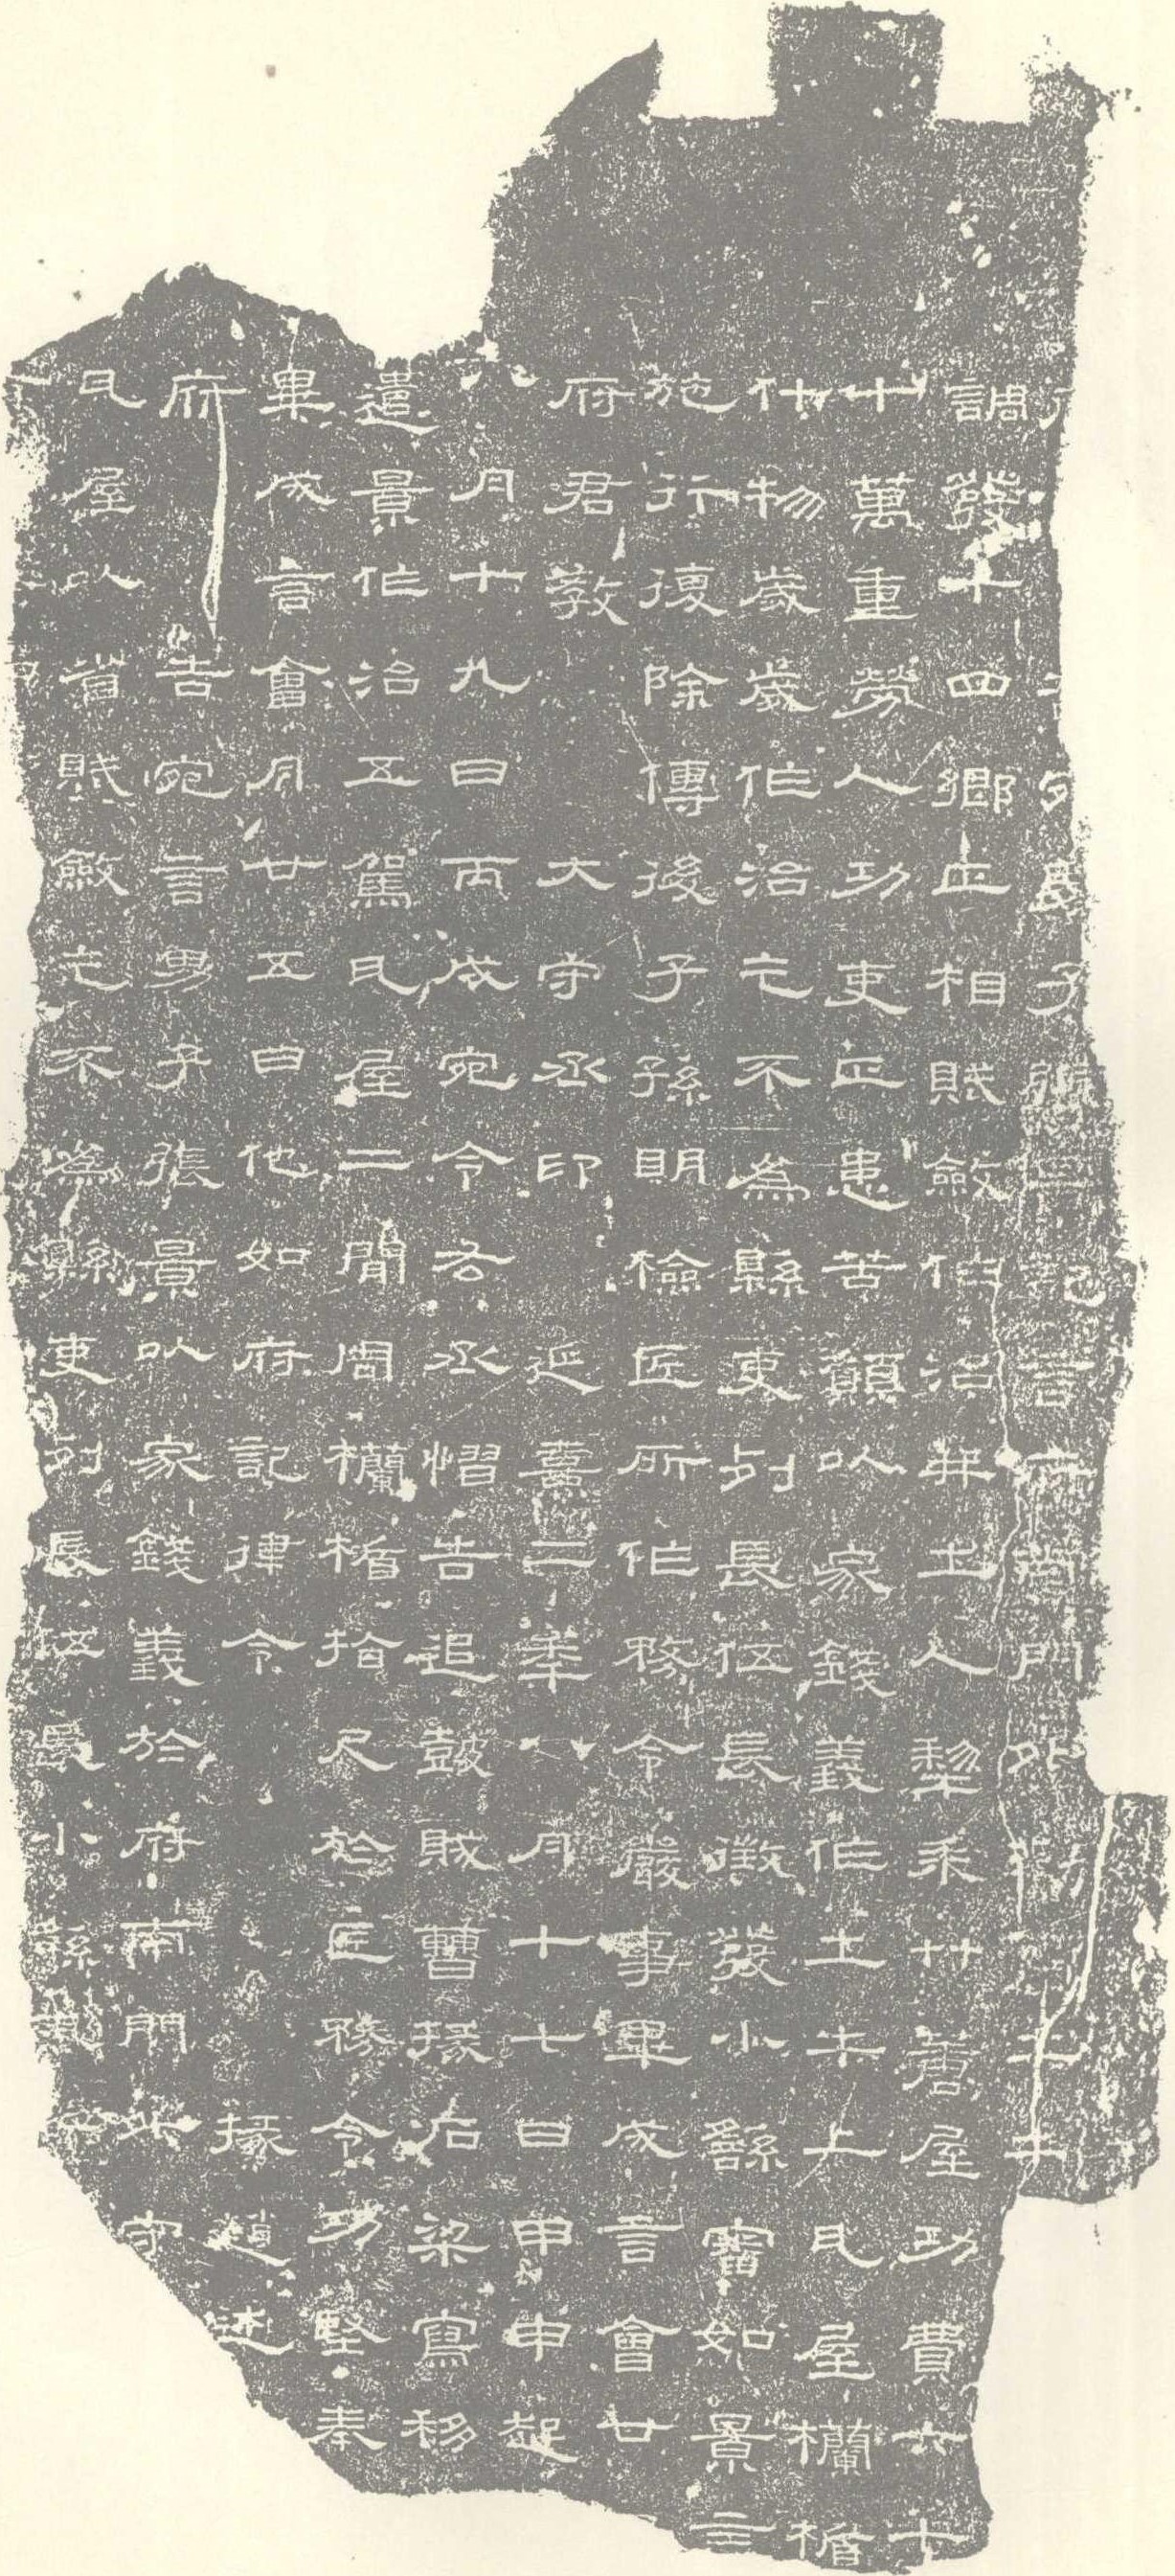 府 列長子張景記言府南門外勸 土牛
調發十四鄉正相賦斂作治并土人犂耒艸蓎屋功費六十
十萬重勞人功吏正患苦願以家錢義作土牛上瓦屋欄楯
什物歲歲作治乞不為縣吏列長伍長徵發小繇審如景言
施行復除傳後子孫明檢匠所作務令嚴事畢成言會廿
府君教 大守丞印 延熹二年八月十七日甲申起
八月十九日丙戌宛令右丞慴告追鼓賊曹掾石梁寫移
遣景作治五駕瓦屋二間周欄楯拾尺於匠務令功堅奉
畢成言會月廿五日他如府記律令 掾趙述
府告宛言男子張景以家錢義於府南門外守
瓦屋以省賦斂乞不為縣吏列長伍長小繇